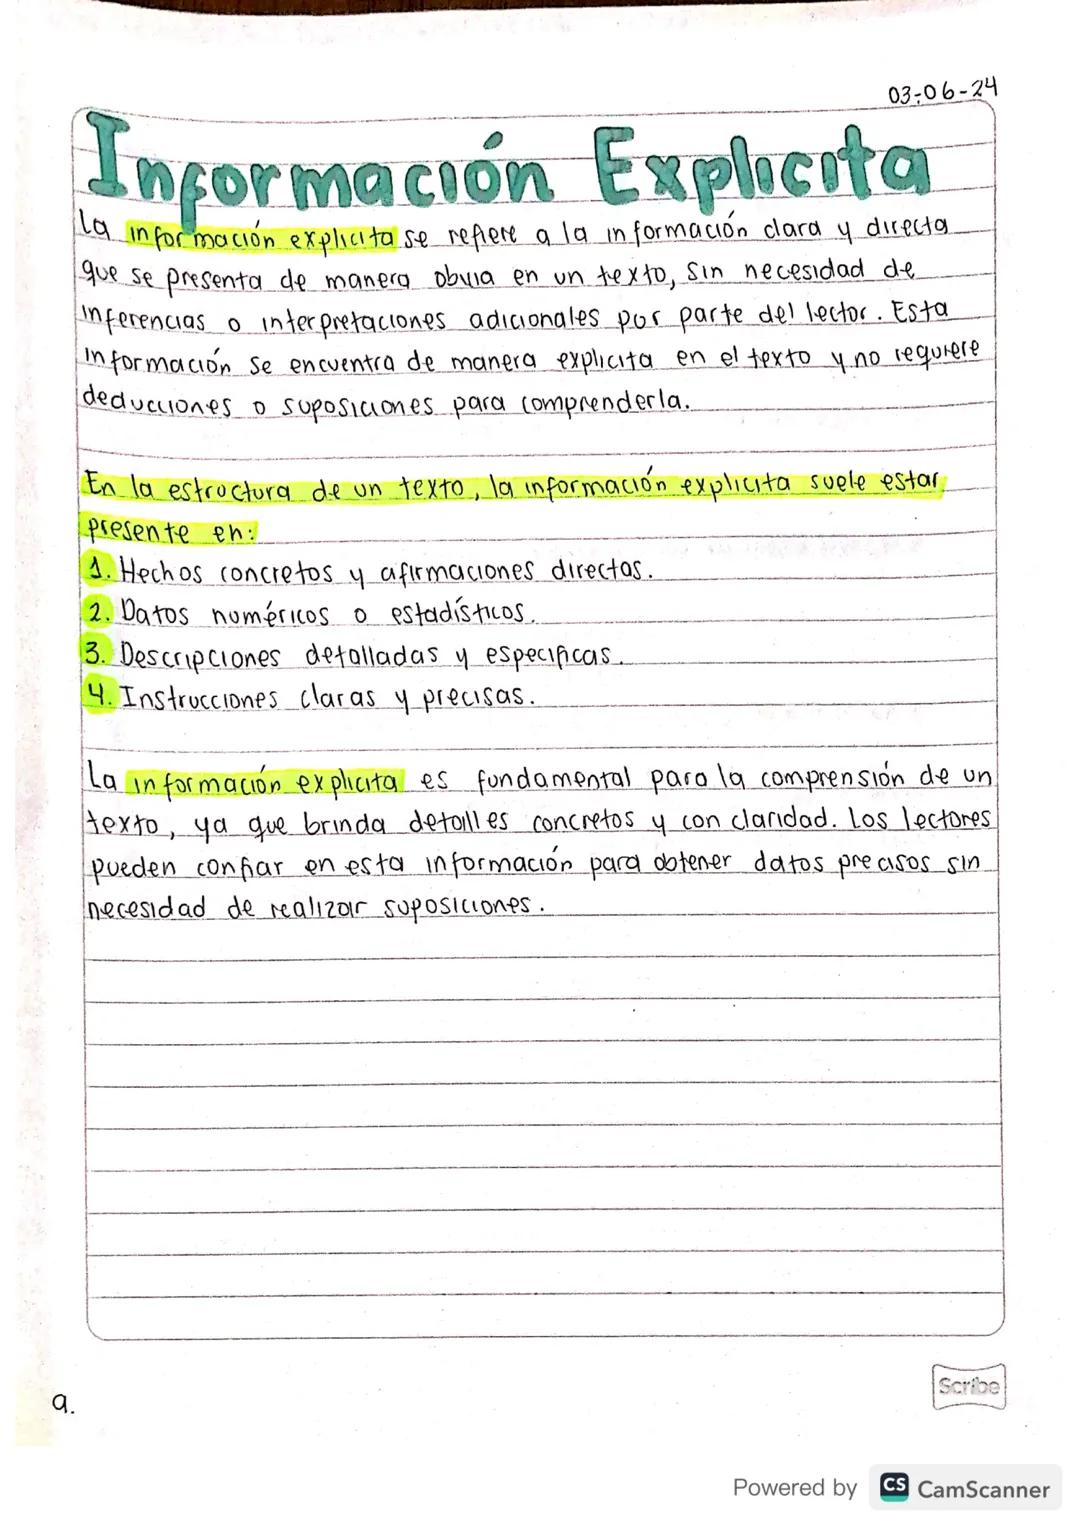 03-06-24
Información Explicita
La información explicita se refiere a la información clara y directa
que se presenta de manera obvia en un texto, sin necesidad de
inferencias o interpretaciones adicionales por parte del lector. Esta
información se encuentra de manera explicita en el texto y no requiere
deducciones o suposiciones para comprenderla.
En la estructura de un texto, la información explicita suele estar
presente en:
1. Hechos concretos y afirmaciones directas.
2. Datos numéricos o estadísticos.
3. Descripciones detalladas y especificas.
4. Instrucciones claras y precisas.
La información explicita es fundamental para la comprensión de un
texto, ya que brinda detalles concretos y con claridad. Los lectores
pueden confiar en esta información para obtener datos precisos sin
necesidad de realizar suposiciones.
Scribe
9.
Powered by CS CamScanner